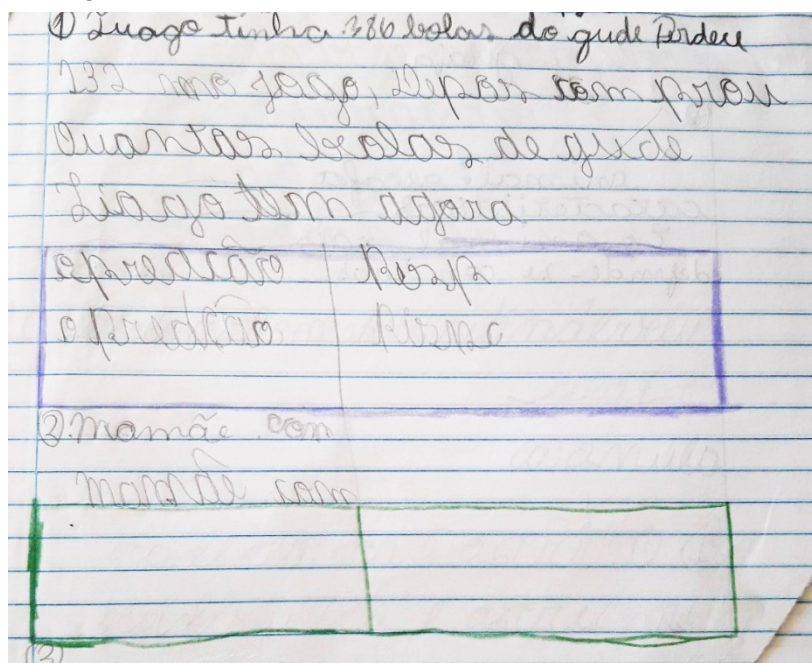 ① Tiago tinha 386 bolas de gude Perdeu
132 mo jogo, Depois comprou
Quantas bolas de gude
Tiago tem agora
opredção Resp
opredção
2. Mamãe com
mamãe com
(3)